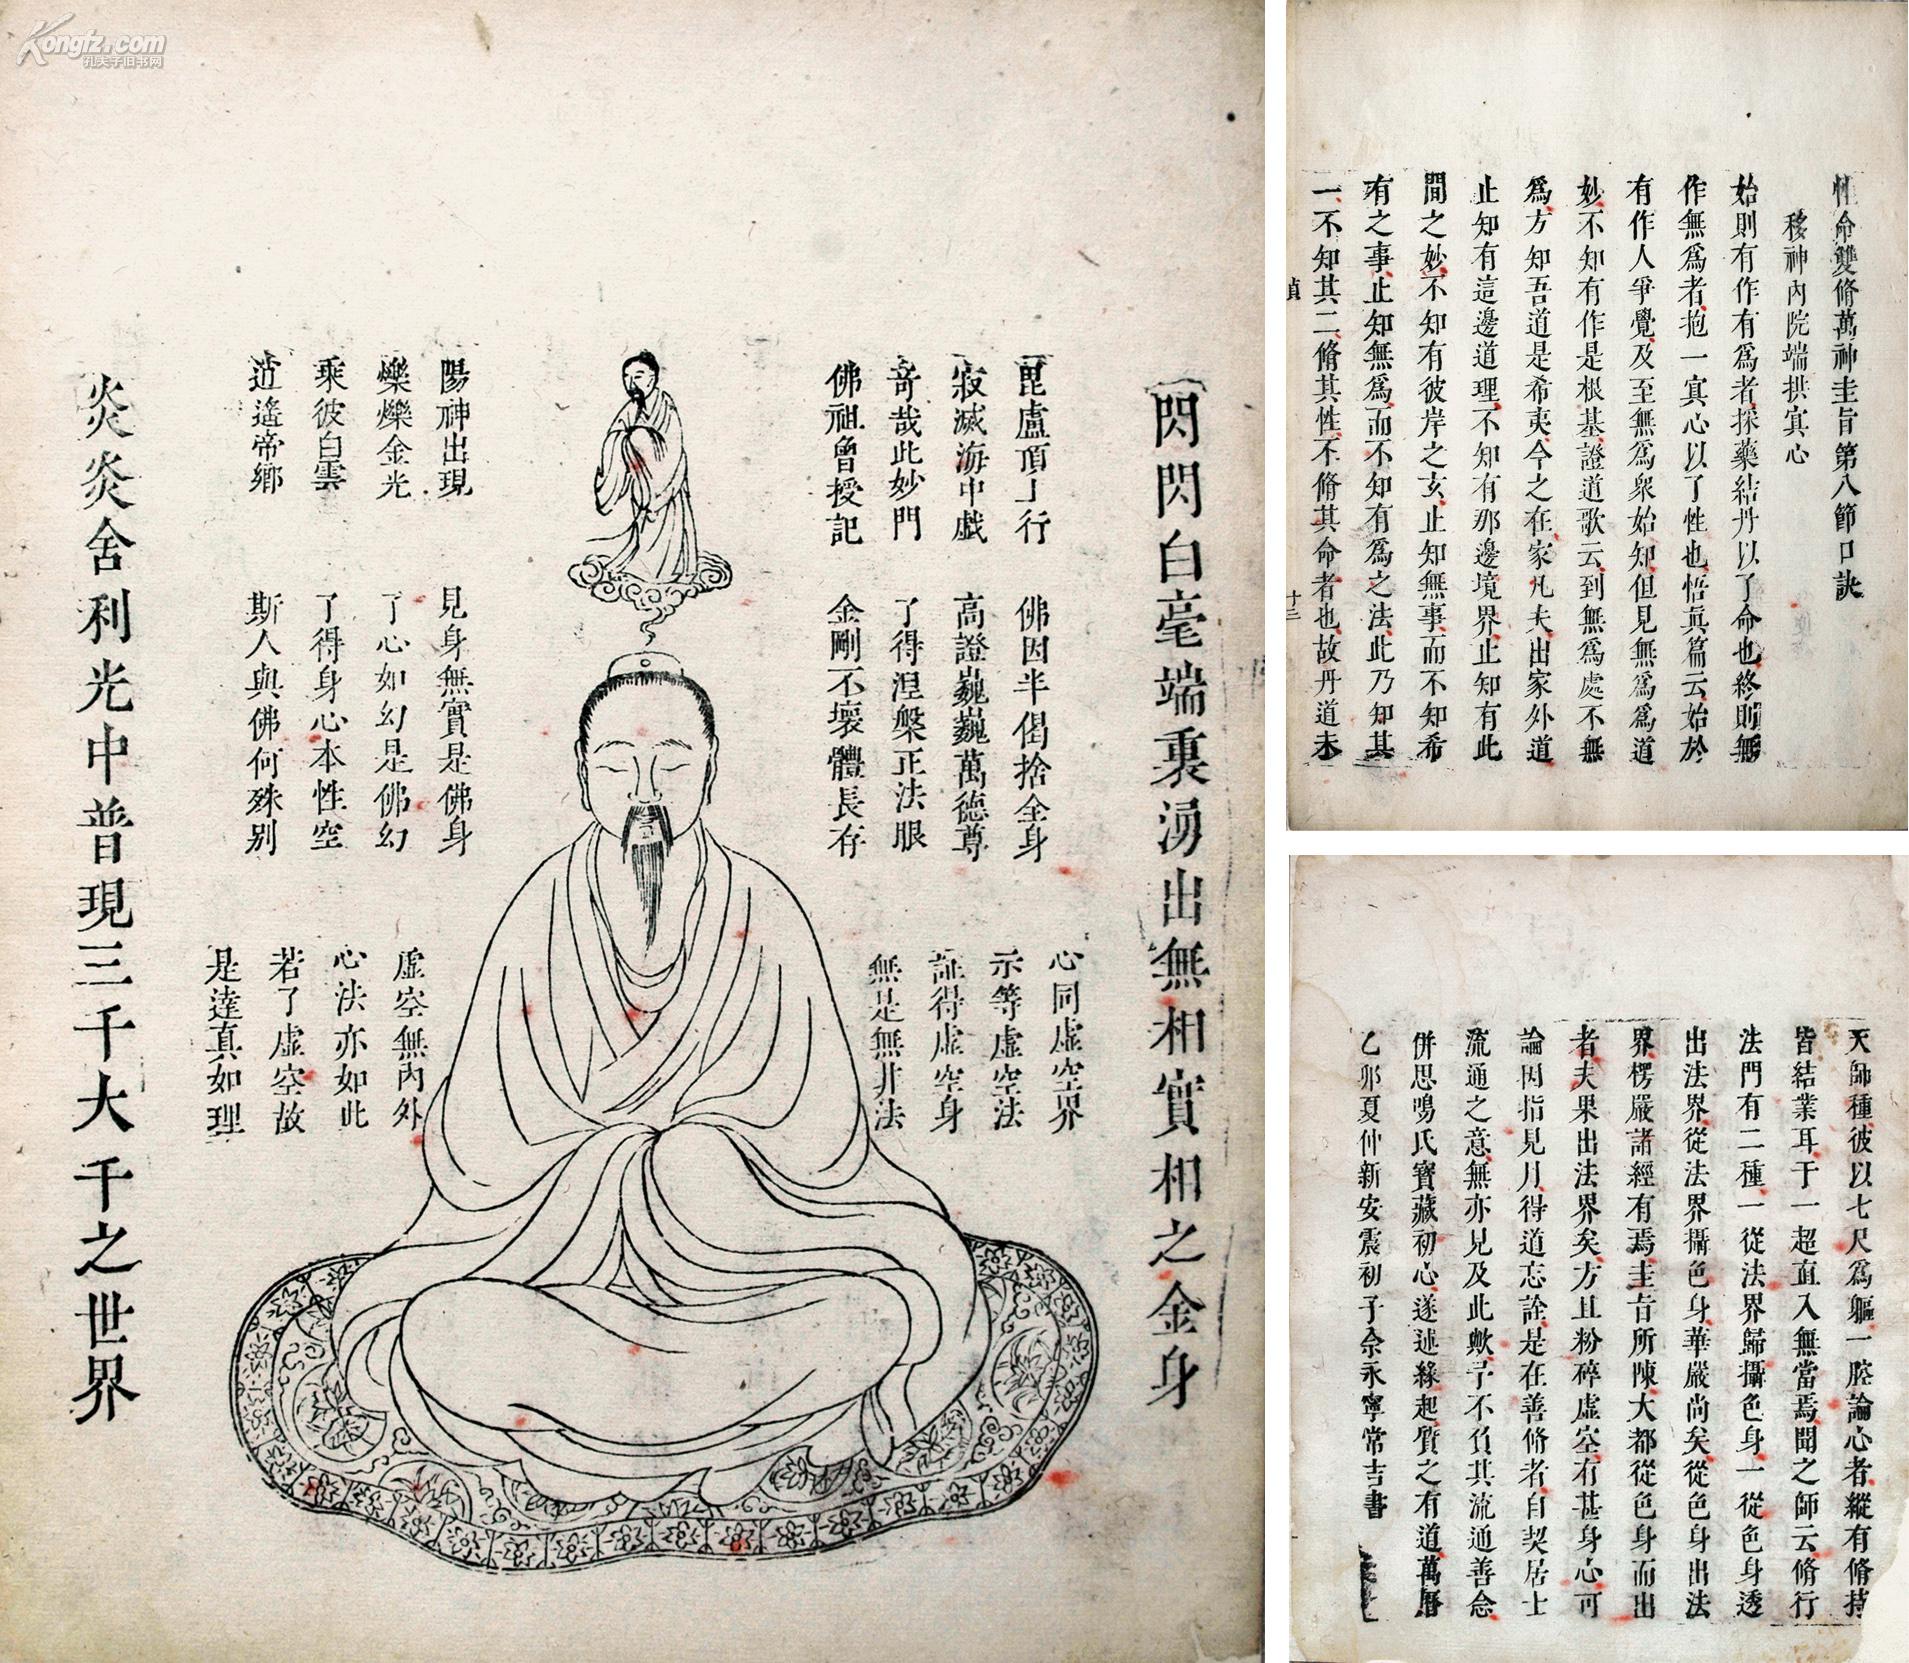 Kongfz.com
孔夫子旧书网
閃閃白毫端裏湧出無相實相之金身
毘盧頂上行
寂滅海中戲
奇哉此妙門
佛祖曾授記
佛因半偈捨全身
高證巍巍萬德尊
了得涅槃正法眼
金剛不壞體長存
心同虛空界
示等虛空法
証得虛空身
無是無非法
陽神出現
爍爍金光
乘彼白雲
逍遙帝鄉
見身無實是佛身
了心如幻是佛幻
了得身心本性空
斯人與佛何殊別
虛空無內外
心法亦如此
若了虛空故
是達真如理
炎炎舍利光中普現三千大千之世界
性命雙脩萬神圭旨第八節口訣
移神內院端拱冥心
始則有作有爲者採藥結丹以了命也終則無
作無爲者抱一冥心以了性也悟眞篇云始於
有作人爭覺及至無爲衆始知但見無爲爲道
妙不知有作是根基證道歌云到無爲處不無
爲方知吾道是希夷今之在家凡夫出家外道
止知有這邊道理不知有那邊境界止知有此
間之妙不知有彼岸之玄止知無事而不知希
有之事止知無爲而不知有爲之法此乃知其
一不知其二脩其性不脩其命者也故丹道未
貞
十三
天師種彼以七尺爲軀一腔論心者縱有脩持
皆結業耳于一超直入無當焉聞之師云脩行
法門有二種一從法界歸攝色身一從色身透
出法界從法界攝色身華嚴尚矣從色身出法
界楞嚴諸經有焉圭旨所陳大都從色身而出
者夫果出法界矣方且粉碎虛空有甚身心可
論因指見月得道忘詮是在善脩者自契居士
流通之意無亦見及此歟予不負其流通善念
併思鳴氏寶藏初心遂述緣起質之有道萬曆
乙卯夏仲新安震初子余永寧常吉書